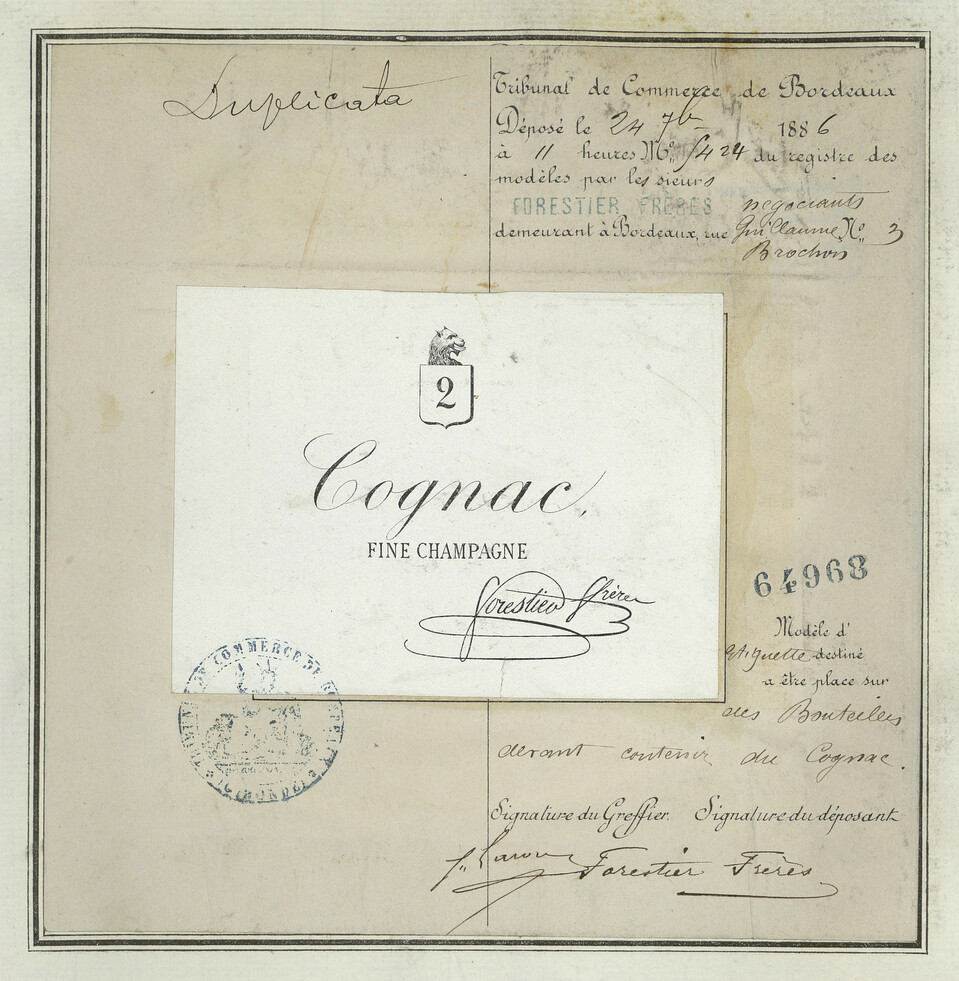 Duplicata
Tribunal de Commerce de Bordeaux
Déposé le 24 7bre 1886
à 11 heures No 5424 du registre des
modèles par les sieurs
FORESTIER FRÈRES négociants
demeurant à Bordeaux, rue Guillaume No 3
Brochon
2
Cognac.
FINE CHAMPAGNE
Forestier Frères
64968
Modèle d'
etiquette destiné
a être place sur
des Bouteilles
devant contenir du Cognac.
TRIBUNAL DE COMMERCE DE BORDEAUX
(GIRONDE)
Signature du Greffier. Signature du déposant
Forestier Frères